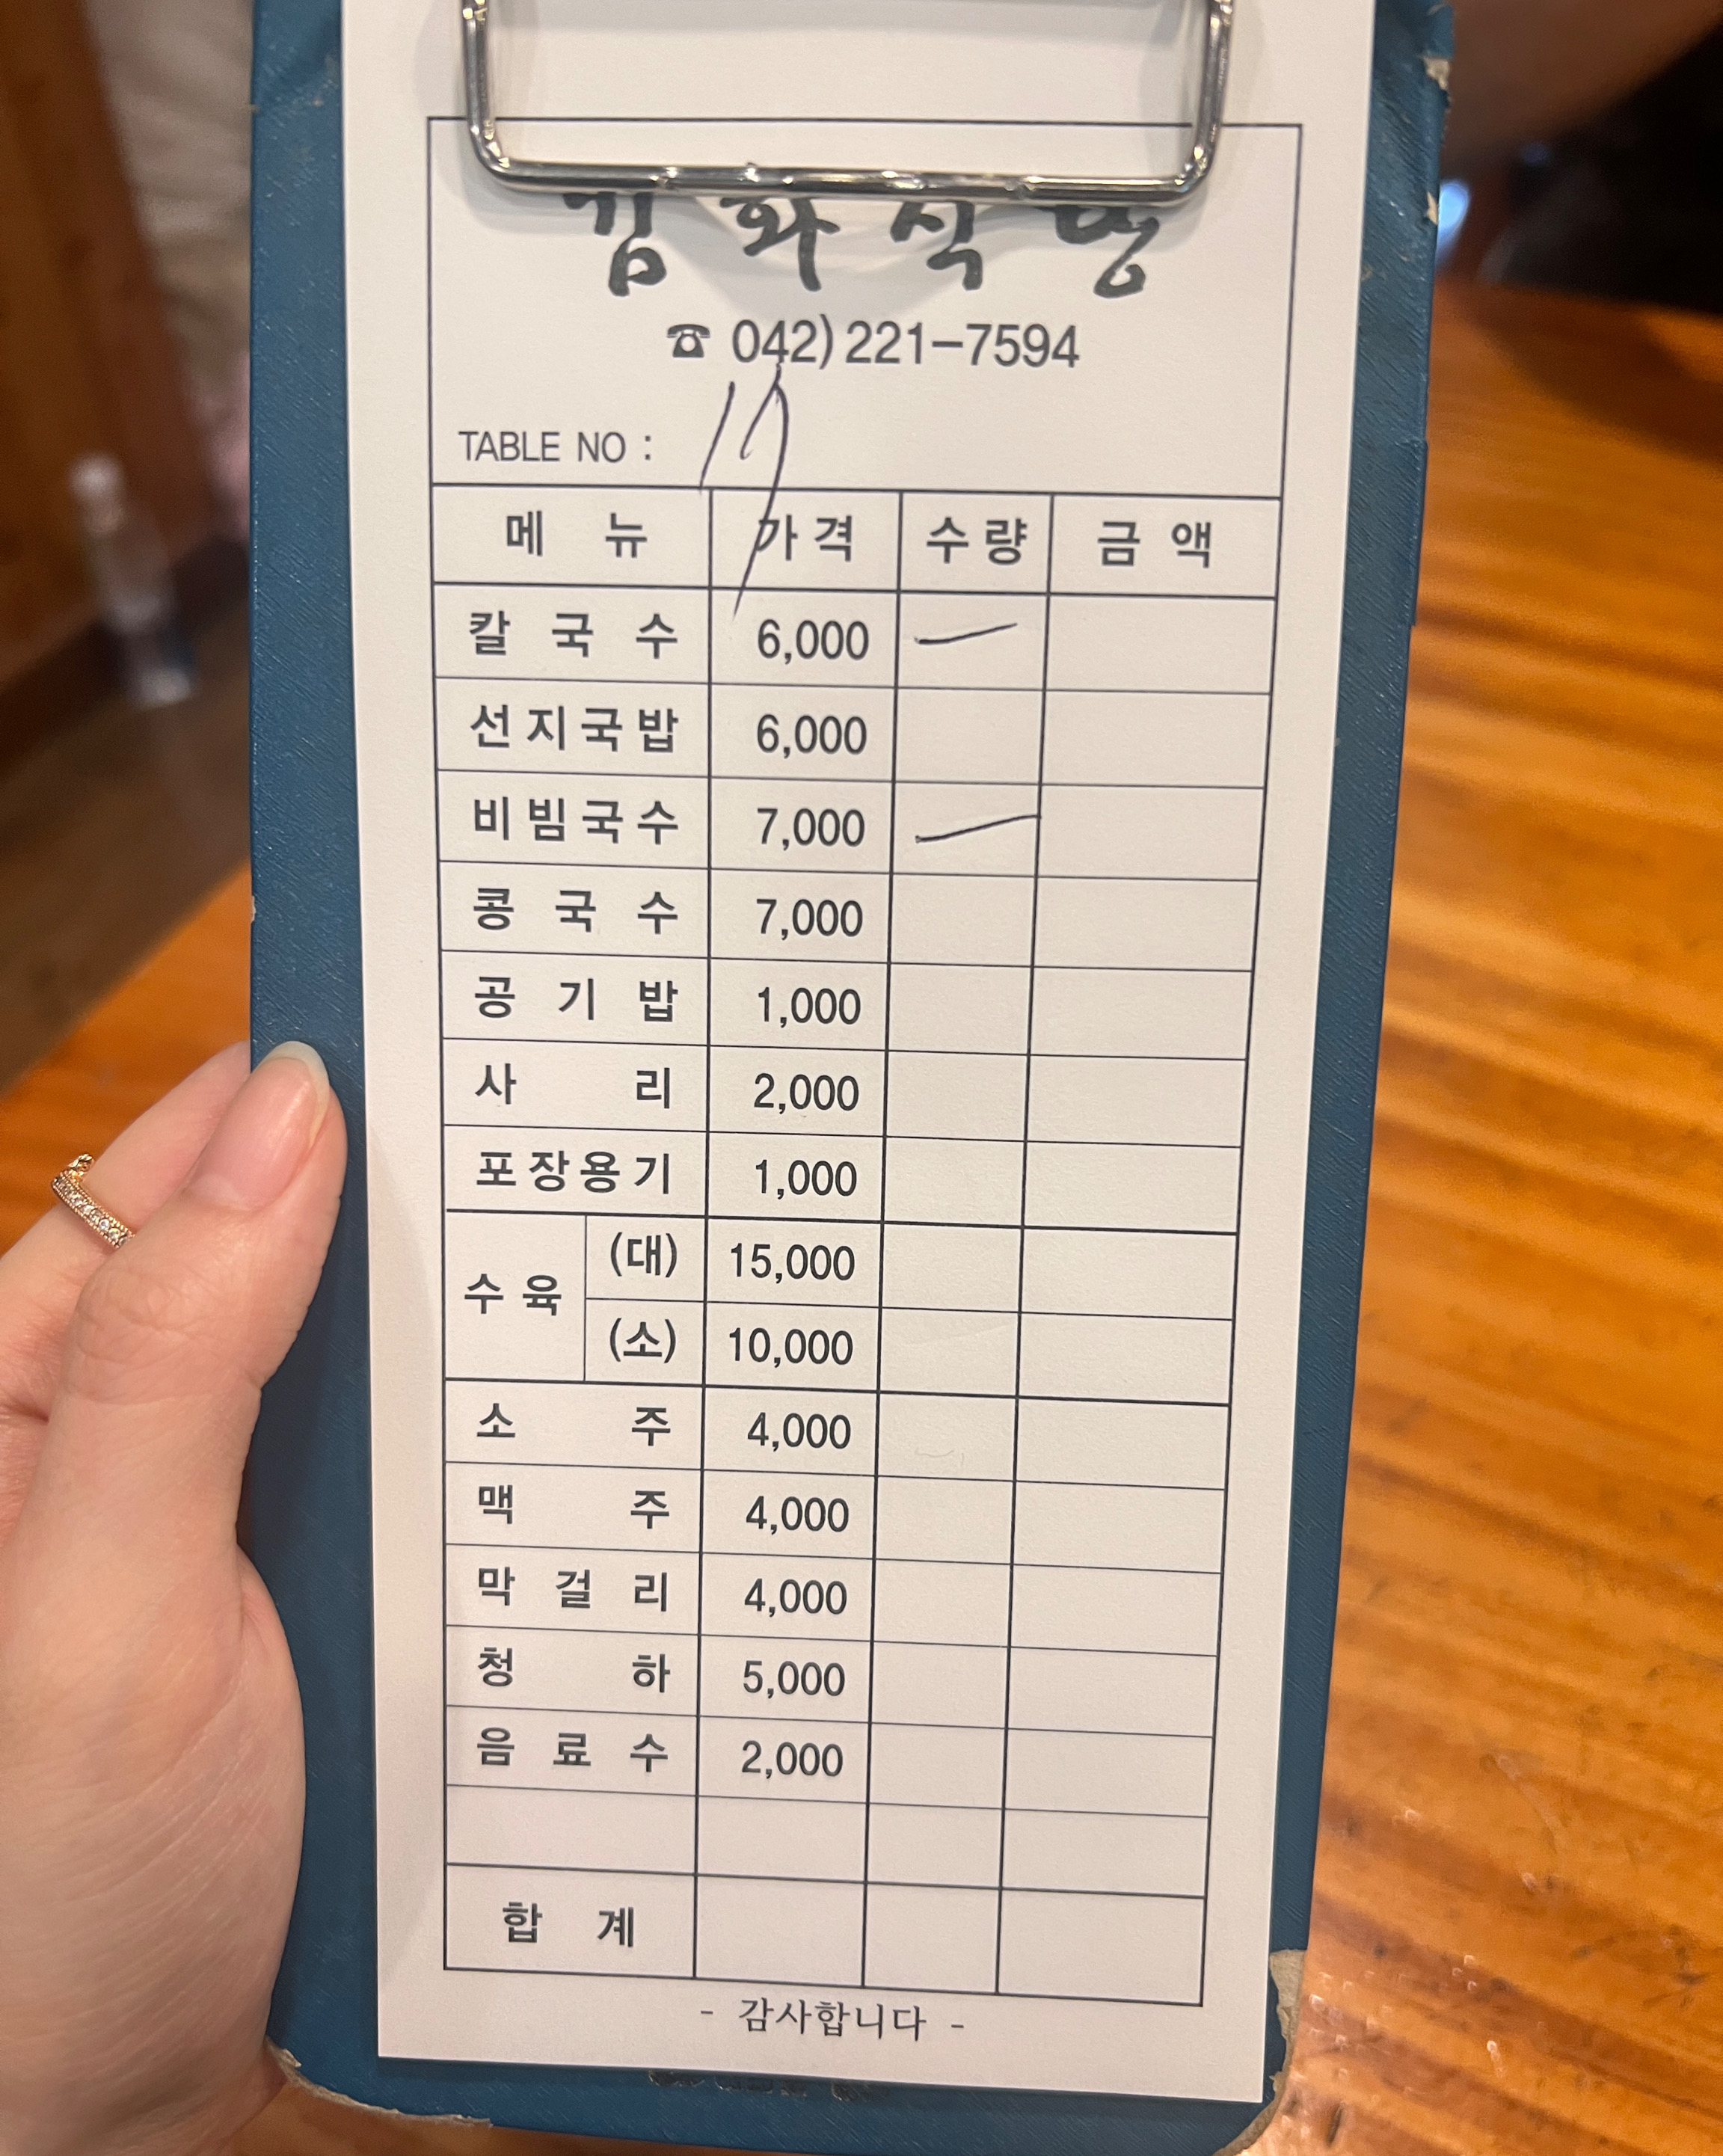 김화식당
☎ 042) 221-7594
TABLE NO : 17
메뉴 가격 수량 금액
칼국수 6,000 ―
선지국밥 6,000
비빔국수 7,000 ―
콩국수 7,000
공기밥 1,000
사리 2,000
포장용기 1,000
수육 (대) 15,000
(소) 10,000
소주 4,000
맥주 4,000
막걸리 4,000
청하 5,000
음료수 2,000
합계
- 감사합니다 -